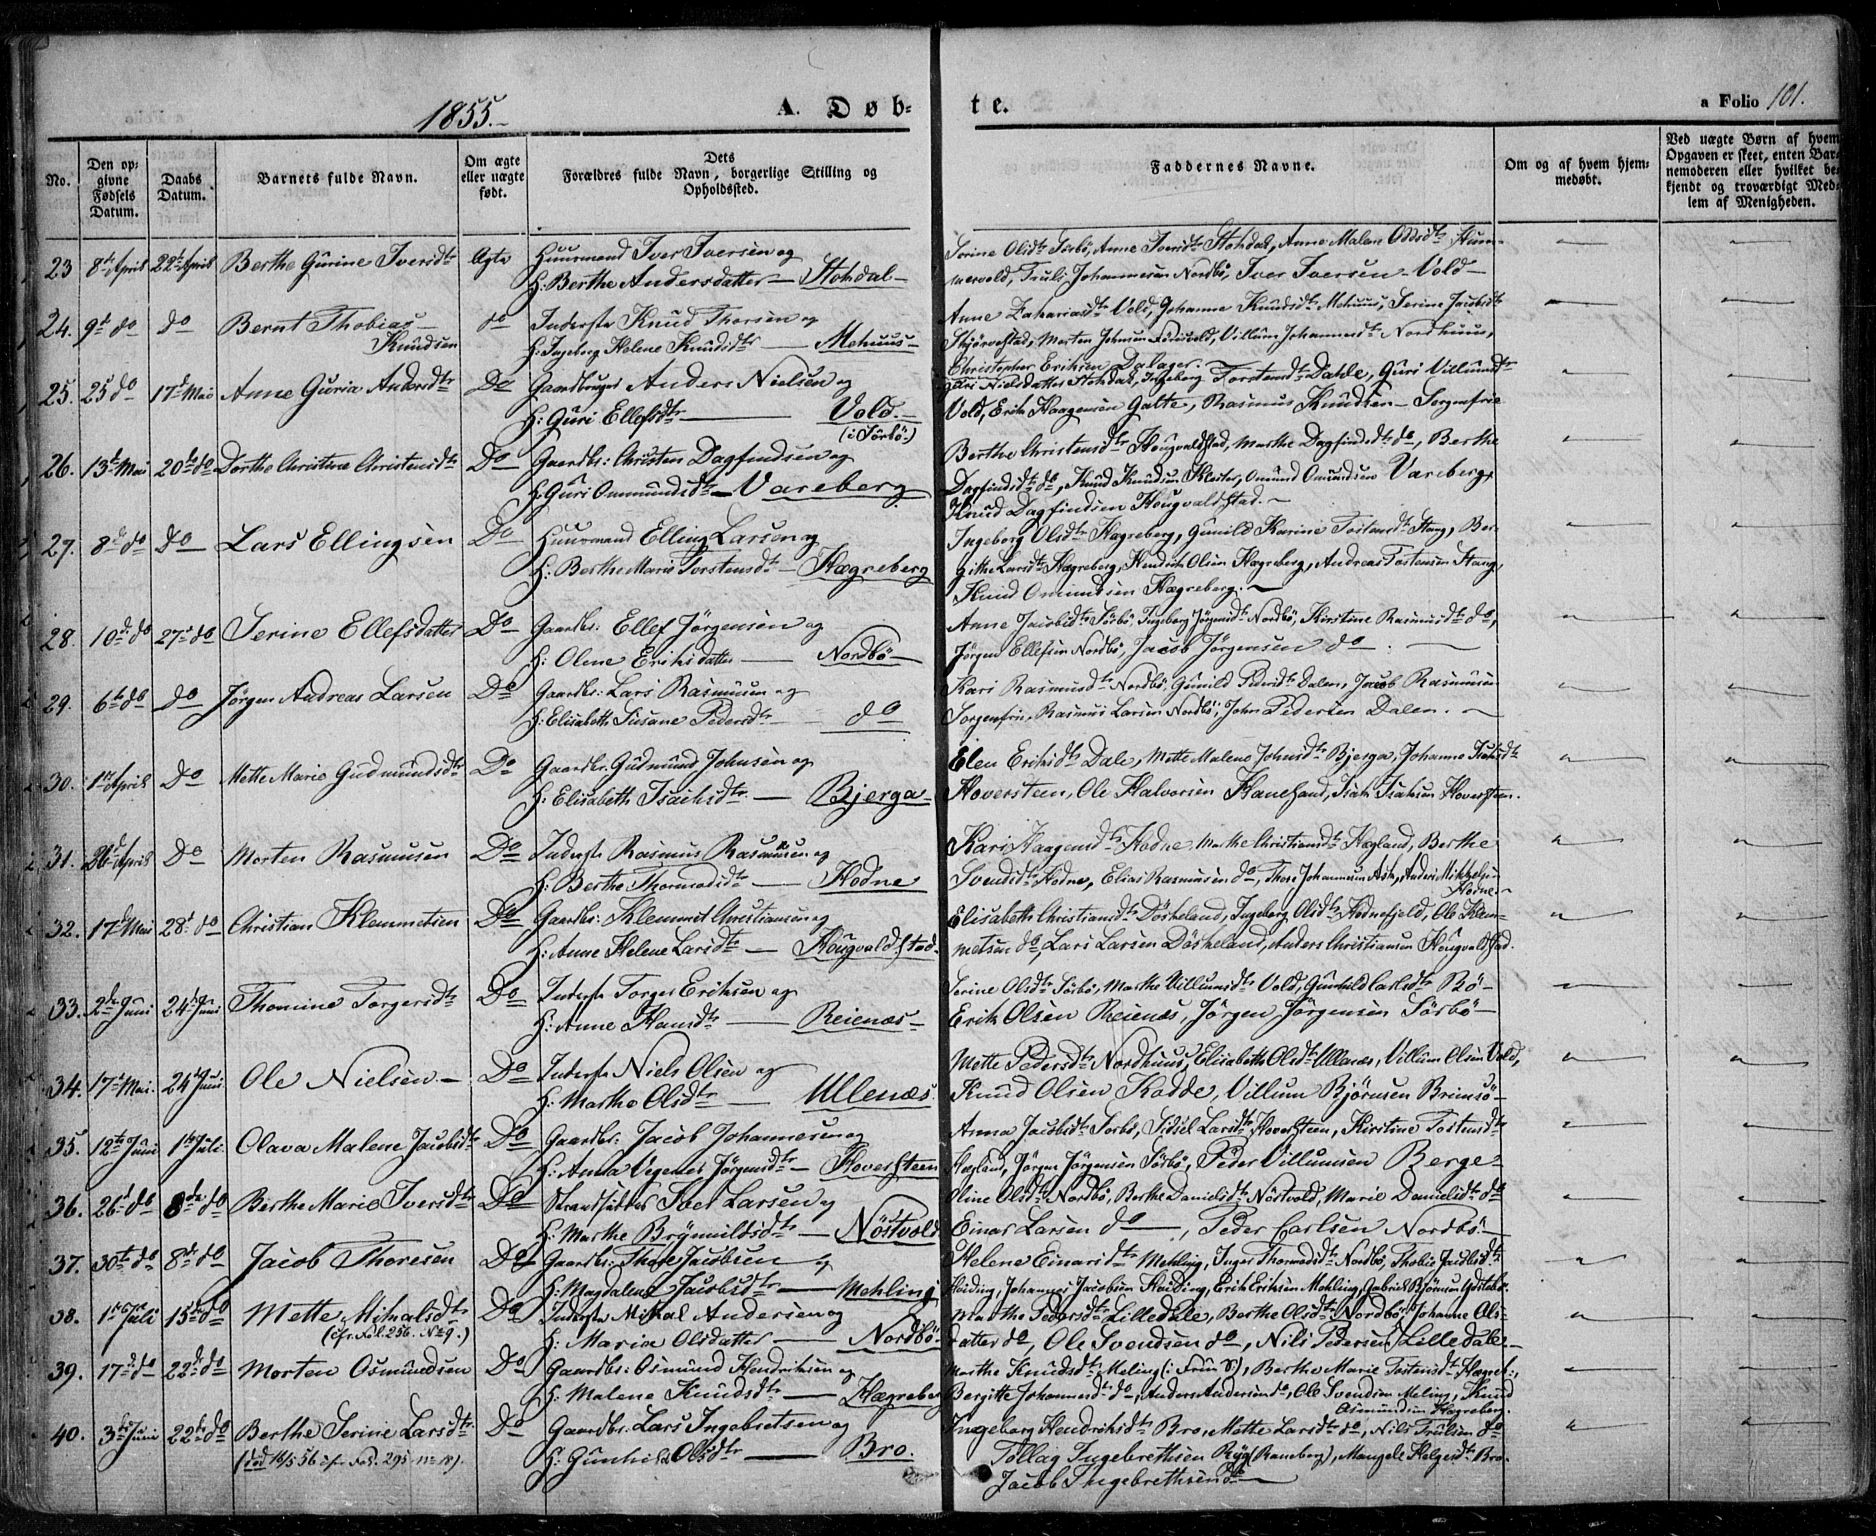 1855.
A. Døb-
te.
a Folio 101.
No.
Den op-
givne
Fødsels
Datum.
Daabs
Datum.
Barnets fulde Navn.
Om ægte
eller uægte
født.
Dets
Forældres fulde Navn, borgerlige Stilling og
Opholdssted.
Faddernes Navne.
Om og af hvem hjem-
medøbt.
Ved uægte Børn af hvem
Opgaven er skeet, enten Bar-
nemoderen eller hvilket be-
kjendt og troværdigt Med-
lem af Menigheden.
23 8de April 22de April Berthe Gurine Iversdtr Ægte Huusmand Iver Iversen og
H: Berthe Andersdatter — Stohdal —
Serine Olsdtr Sørbö, Anne Iversdtr Stohdal, Anne Malene Odsdtr Hum-
mervold, Truls Johannesen Nordbö, Iver Iversen Vold —
24. 9de do do Bernt Thobias Knudsen do Inderste Knud Thorsen og
H: Ingeborg Helene Knudsdtr — Mehuus —
Anne Zachariasdtr Vold, Johanne Knudsdtr Mehuus, Serine Jacobsdtr
Morten Johnsen Villum Johannesdtr Nordhuus,
Christopher Eriksen Dalager. —
25. 25 do 17de Mai Anne Guria Andersdtr Do Gaardbruger Anders Nielsen og
H: Guri Ellefsdtr — Vold. —
(i Sørbö.)
Guri Nielsdatter Stohdal, Ingeborg Torstensdtr Dahle, Guri Villumsdtr
Vold, Erik Haagensen Galte, Rasmus Knudsen — Sorgenfrie
26. 13de Mai 20de do Dorthe Christine Christensdtr Do Gaardbr: Christen Dagfindsen og
H: Guri Onmundsdtr — Vareberg
Berthe Christensdtr Hougvaldstad, Marthe Dagfindsdtr do, Berthe
Dagfindsdtr do, Knud Knudsen Kloster, Omund Omundsen Vareberg,
Knud Dagfindsen Hougvaldstad. —
27. 8de do Do Lars Ellingsen Do Huusmand Elling Larsen og
H: Berthe Marie Torstensdtr — Hægreberg
Ingeborg Olsdtr Hægreberg, Gunild Karine Tostensdtr Stang, Ber-
githe Larsdtr Hægreberg, Hendrich Olsen Hægreberg, Andreas Tostensen Stang,
Knud Omundsen Hægreberg. —
28. 10de do 27de do Serine Ellefsdatter Do Gaardbr: Ellef Jörgensen og
H: Olene Eriksdatter — Nordbö —
Anne Jacobsdtr Sörbö, Ingeborg Jörgensdtr Nordbö, Kirstine Rasmusdtr do,
Jörgen Ellefsen Nordbö, Jacob Jörgensen do. —
29. 6te do do Jörgen Andreas Larsen Do Gaardbr: Lars Rasmusen og
H: Elisabeth Susane Pedersdtr — do
Kari Rasmusdtr Nordbö, Gunild Pedersdtr Dalen, Jacob Rasmusen
Sorgenfrie, Rasmus Larsen Nordbö, John Pedersen Dalen. —
30. 1ste April Do Mette Marie Gudmundsdtr Do Gaardbr. Gudmund Johnsen og
H: Elisabeth Isachsdtr. — Bjerga —
Elen Eriksdtr Dale, Mette Malene Johnsdtr Bjerga, Johanne Isachsdtr
Hoversteen, Ole Halvorsen Hanesand, Isach Isachsen Hoversteen.
31. 26de April Do Morten Rasmusen Do Inderste Rasmus Rasmusen og
H: Berthe Thormodsdtr — Hodne
Kari Haagensdtr Hodne Marthe Christiansdtr Hægland, Berthe
Svendsdtr Hodne, Elias Rasmusen do, Thore Johannesen Ask, Anders Mikkelsen
Hodne. —
32. 17de Mai 28de do Christian Klemmetsen Do Gaardbr: Klemmet Christiansen og
H: Anne Helene Larsdtr — Hougvaldstad.
Elisabeth Christiansdtr Döskeland, Ingeborg Olsdtr Hodnefjeld, Ole Klem-
metsen do, Lars Larsen Döskeland, Anders Christiansen Hougvaldstad.
33. 2den Juni 24de Juni Thomine Torgersdtr Do Inderste Torger Eriksen og
H: Anne Hansdtr — Reienæs —
Serine Olsdtr Sörbö, Marthe Villumsdtr Vold, Gunhild Carlsdtr Bö —
Erik Olsen Reienæs, Jörgen Jörgensen Sörbö —
34. 17de Mai. 24de Juni Ole Nielsen — Do Inderste Niels Olsen og
H: Marthe Olsdtr — Ullenæs
Mette Pedersdtr Nordhuus, Elisabeth Olsdtr Ullenæs, Villum Olsen Vold,
Knud Olsen Kodde, Villum Björnsen Brimsö —
35. 12te Juni 1ste Juli Olava Malene Jacobsdtr Do Gaardbr: Jacob Johannesen og
H: Anna Vegenes Jörgensdtr — Hoversteen
Anna Jacobsdtr Sorbö, Sidsel Larsdtr Hoversteen, Kirstine Tostensdtr
Hægland, Jörgen Jörgensen Sörbö, Peder Villumsen Berge —
36. 26de do 8de do Berthe Marie Iversdtr Do Strandsidder Iver Larsen og
H: Marthe Brynnildsdtr — Nöstvold
Oline Olsdtr Nordbö, Berthe Danielsdtr Nöstvold, Marie Danielsdtr do
Einar Larsen do —, Peder Carlsen Nordbö. —
37. 30te do 8de do Jacob Thoresen Do Gaardbr: Thore Jacobsen og
H: Magdalena Jacobsdtr — Mehling
Helene Einarsdtr Mehling, Inger Thormodsdtr Nordbö, Thobie Jacobsdtr
Hviding, Johannes Jacobsen Hviding, Erik Eriksen Mehling, Gabriel Björnsen
38. 1ste Juli 15de do Mette Mikalsdtr Do Inderste Mikal Andersen og
(cfr. Fol. 256. No 9.) H: Maria Olsdatter — Nordbö
Marthe Pedersdtr Lilledale, Berthe Olsdtr Nordbö, Johanne Ols-
datter do, Ole Svendsen do, Nils Pedersen Lilledale. —
39. 17de do 22de do Morten Osmundsen Do Gaardbr: Osmund Hendriksen og
H: Malene Knudsdtr — Hægreberg
Marthe Knudsdtr Meling, Berthe Marie Tostensdtr Hægreb:,
Bergitte Johannesdtr do, Anders Andersen do, Ole Svendsen Meling, Knud
Osmundsen Hægreberg.
40. 3die Juni 22de do Berthe Serine Larsdtr. Do Gaardbr. Lars Ingebretsen og
(död 16/5 56 cfr. Fol. 295. No 18). H: Gunhild Olsdtr — Bro.
Ingeborg Hendriksdtr Bro, Mette Larsdtr do, Nils Trulsen do
Tollag Ingebrethsen Ryg (Ramberg), Mangele Helgesdtr Bro.
Jacob Ingebrethsen do —